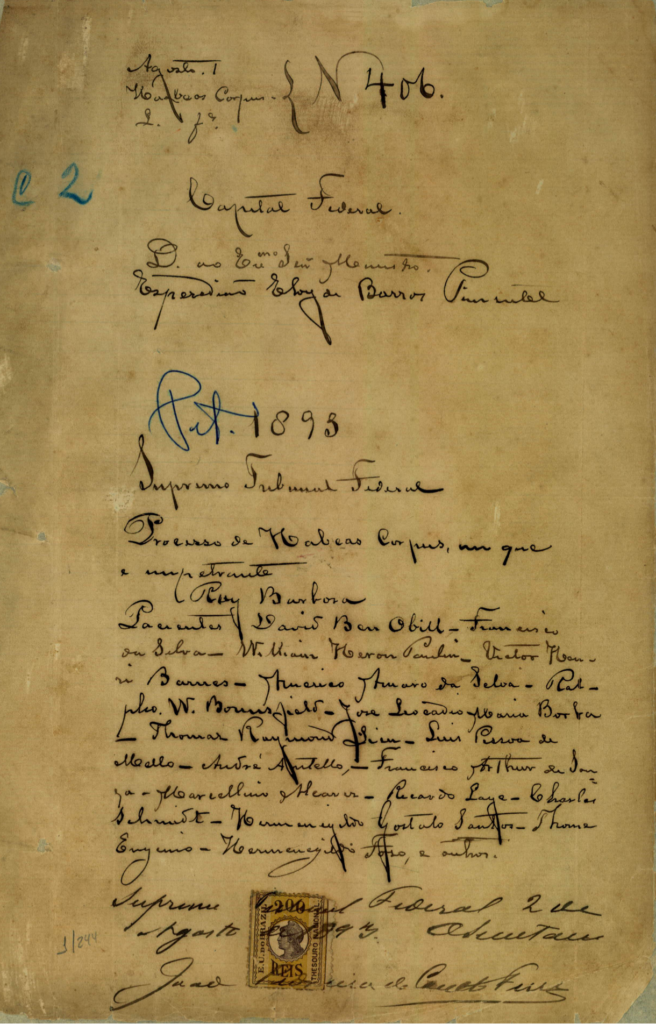 Agosto. 1
Habeas Corpus.
N 406.
C 2
Capital Federal.
D. ao Exmo Señ Ministro.
Esperidião Eloy de Barros Pimentel
Pet. 1893
Supremo Tribunal Federal
Processo de Habeas Corpus, em que
e impetrante
Ruy Barbosa
Pacientes David Ben Obill – Francisco
da Silva – William Heron Paulin – Victor Hen-
ri Barnes – Americo Amaro da Silva – Ral-
pho. W. – José Leocadio Maria Borba
– Thomar Raymond – Luis Pessoa de
Mello – André – Francisco Arthur de Sou-
za – Marcellino – Ricardo – Charles
Schmidt – Hermenegildo Gostalo Santos – Thome
Eugenio – Hermenegildo, e outros.
Supremo Tribunal Federal 2 de
Agosto de 1893. O Secretario
João
200
REIS
THESOURO NACIONAL
E.U. DO BRAZIL
1/244